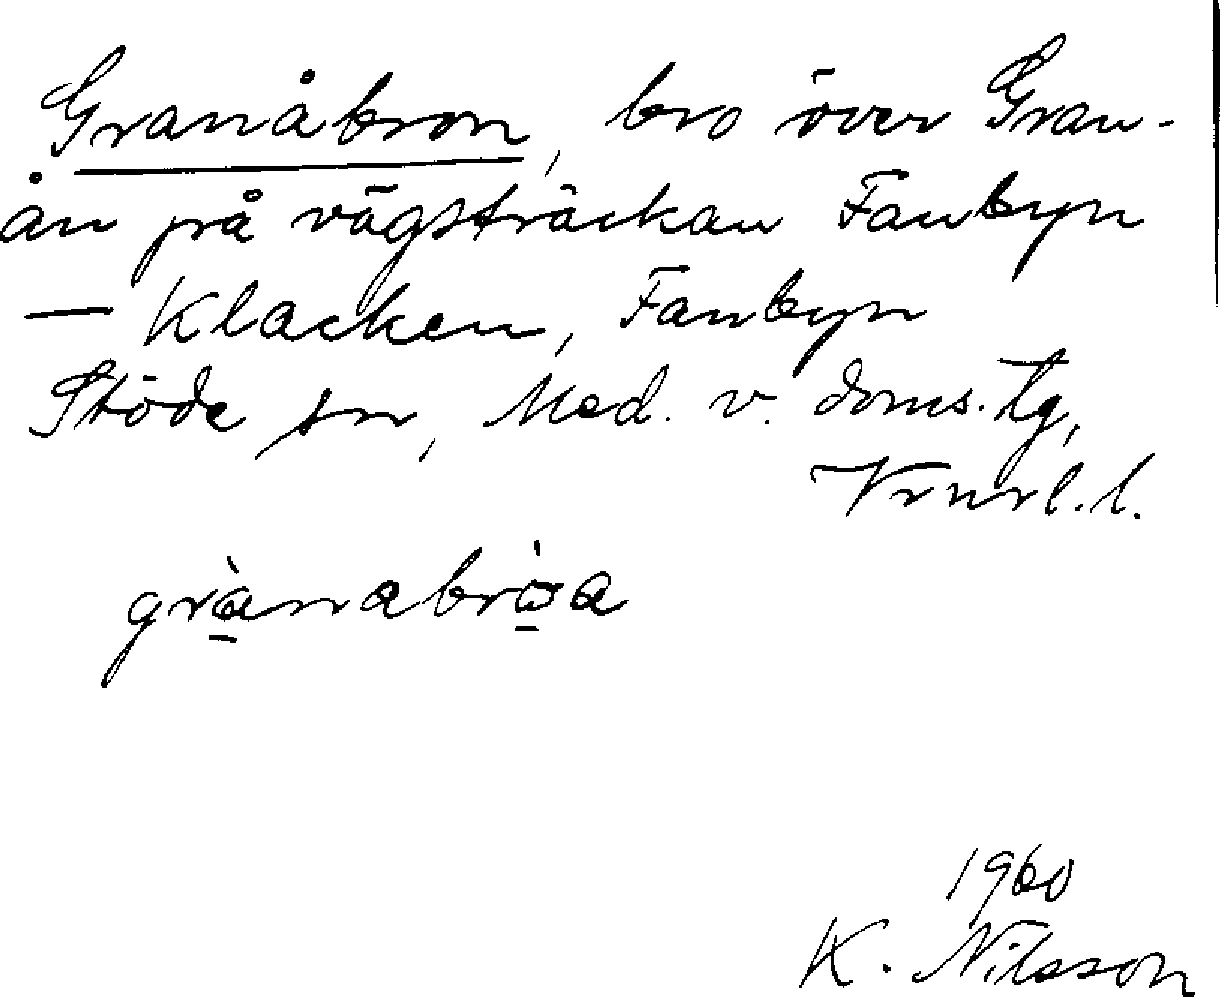 Granåbron, bro över Gran-
ån på vägsträckan Fanbyn
— Klacken, Fanbyn
Stöde sn, Med. v. doms. tg,
Vrnrl. l.
grànabròa
1960
K. Nilsson